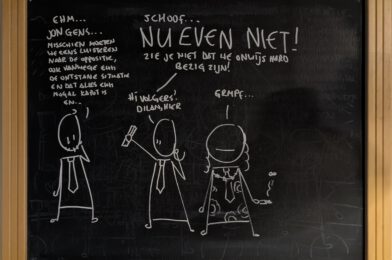 EHM...
JONGENS...
MISSCHIEN MOETEN
WE EENS LUISTEREN
NAAR DE OPPOSITIE,
OOK VANWEGE EHH
DE ONTSTANE SITUATIE
EN DAT ALLES EHH
NOGAL KAPOT IS
EN...
SCHOOF...
NU EVEN NIET!
ZIE JE NIET DAT WE ONWIJS HARD
BEZIG ZIJN!
HI VOLGERS!
DILAN HIER
GRMPF...